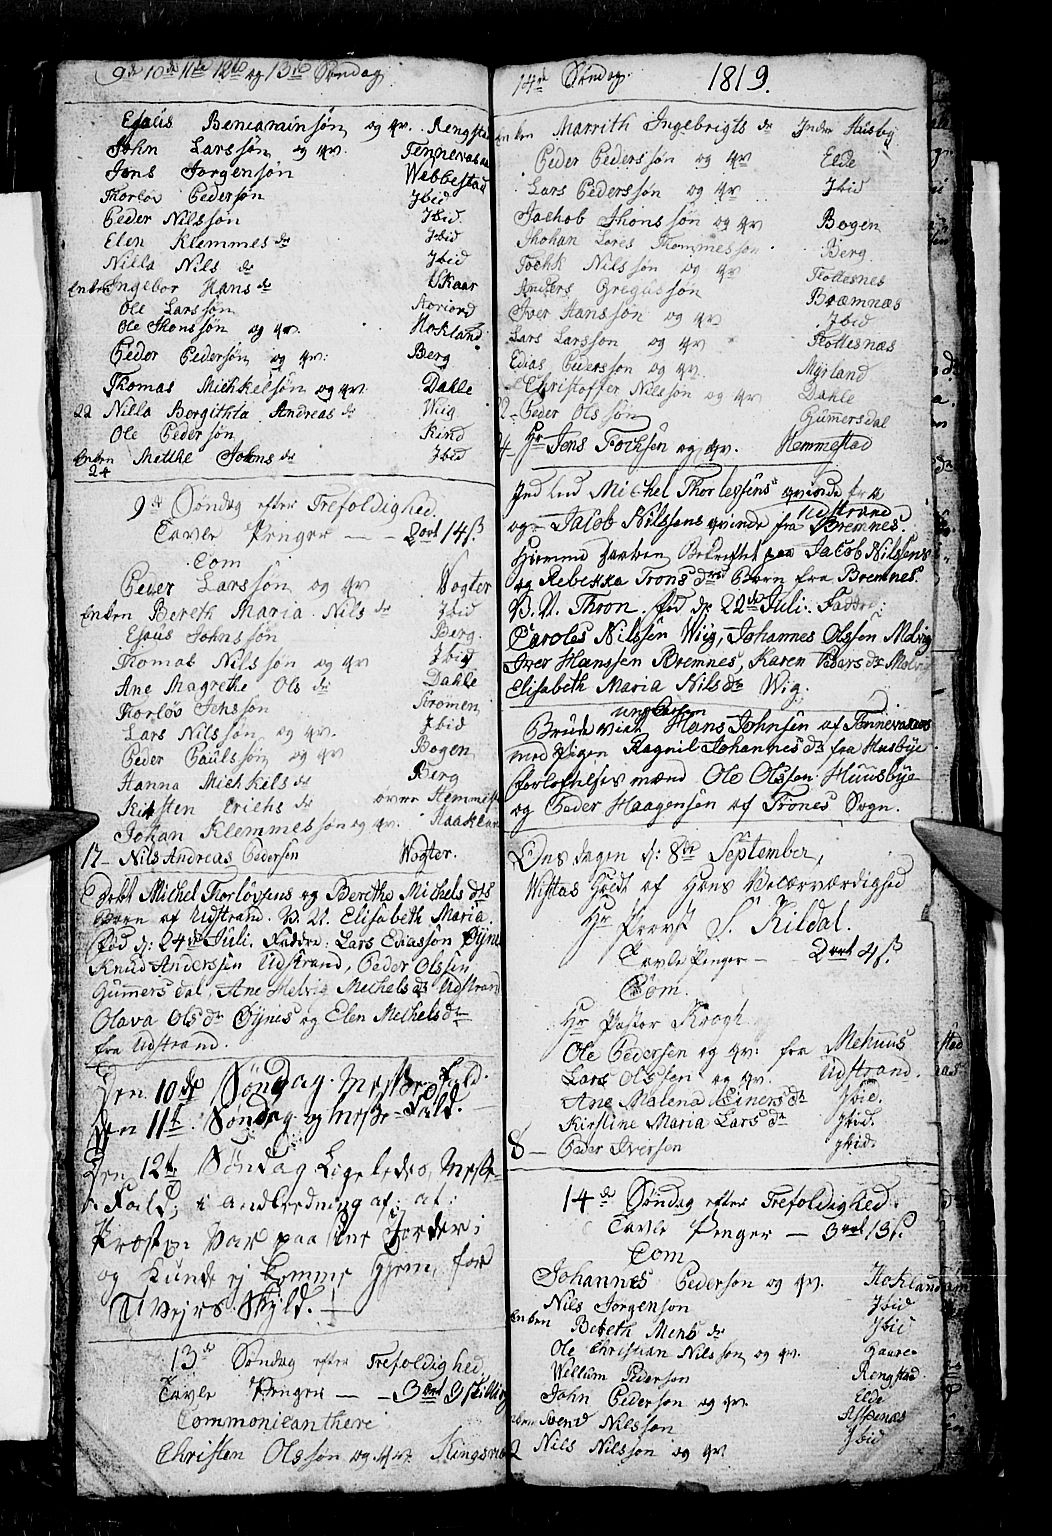 9de 10de 11te 12te og 13te Søndag
Esaiis Beniaminsøn og qv. Rengstad
John Larssøn og qv. Tennevasnes
Jens Jorgensøn Webbestad
Thorløv Pedersøn Jbid
Peder Nilsøn Jbid
Elen Klemmes dr Jbid
Nilla Nils dr Jbid
Enken Ingebor Hans dr Skaar
Ole Larssøn
Ole Thonssøn og qv. Hokland
Peder Pedersøn og qv: Berg
Thomas Michkelsøn og qv. Dahle
22 Nilla Borgithta Andreas dr Wiig
Ole Pedersøn Kind
Enken Metthe Johns dr Jbid
24
9de Søndag efter Trefoldighed.
Tavle Penger — 2ort 14 ß
Com
Peder Larssøn og qv Vogter
Enken Bereth Maria Nils dr Jbid
Esaus Johnssøn Berg.
Thomas Nilssøn og qv Jbid
Ane Magrethe Ols dr Dahle
Thorløs Jenssøn Stromen
Lars Nilssøn og qv. Jbid
Peder Paulssøn og qv Bogen
Hanna Michkils dr Berg
Kirsten Erichs dr øvre Hemmest
Johan Klemmessøn og qv. Haaklan
17 - Nils Andreas Pedersen Vogter.
Døbt Michel Torløvsens og Berethe Michels drs
Børn af Udstrand. B. N. Elisabeth Maria.
fød d: 24de Juli. Faddre: Lars Ediassøn Øynes
Knud Anderssen Udstrand, Peder Olssen
Gummersdal, Ane Helvig Michels dr Udstrand
Olava Ols dr Øynes og Elen Mechels dr
fra Udstrand.
Den 10de Søndag. Messe Fald.
Den 11te Søndag og Messe-Fald.
Den 12te Søndag Ligeledes, Messe-
Fald; i andledning af: at:
Prosten Var paa sine Færder i
og Kunde ej komme Hjem, for
Uvejrs Skyld.
13de Søndag efter Trefoldighed,
Tavle Penger — 3ort 9 skilling
Commonicanthere
Christen Olssøn og qv. Kingsvig
14de Søndag. 1819.
Enken Marrith Ingebrigts dr Indre Husby
Peder Pederssøn og qv Elde
Lars Pederssøn og qv Jbid
Jachob Thonssøn og qv Bogen
Thohan Lores Thommessøn Berg.
Fochk Nilssøn og qv Flottesnes
Anders Gregussøn Bræmnæs
Iver Hanssøn og qv Jbid
Lars Larssøn og qv Flottesnæs
Edias Pederssøn og qv. Myrland
Christoffer Nilssøn og qv Dahle
Peder Olssøn Gummersdal
Hr Jens Fochsen og qv. Hemmestad
Ind led Michel Thorlessens qvinde fra
Udstrand
og Jacob Nilssens qvinde fra Bremnes.
Hjemme daaben Bekræftet paa Jacob Nilssens
og Rebekka Trons drs Barn fra Bremnes.
B. N. Thron. fød d: 22de Juli. Faddre:
Caroles Nilssen Wiig, Johannes Olssen Melvig
Iver Hanssen Bremnes, Karen Peders dr Melvig
Elisabeth Maria Nils dr Wig.
ung Carlen
Brude viet Hans Johnsen af Tennevasnes
med Pigen Ragnil Johannes dr fra Husbye
forlovelses mænd Ole Olssen Huusbye
og Peder Haagensen af Trones Sogn.
Onsdagen d: 8de September,
Visitas Holdt af Hans Velærværdighed
Hr Provst S. Kildal.
Tavle Penger — 2ort 4 ß.
Com.
Hr Pastor Krogh
Ole Pedersen og qv: fra Mehuus
Lars Olssen og qv. Udstrand.
Ane Malena Einers dr Jbid.
Kirstine Maria Lars dr Jbid.
8 — Peder Iversen Jbid.
14de Søndag efter Trefoldighed.
Tavle Penger — 3ort 13 ß.
Com
Johannes Pedersøn og qv. Hokland
Nils Jorgensøn Jbid
Enken Bereth Mens dr Jbid
Ole Christian Nilssøn og qv. Gaare
Wellum Pedersøn Rengstad
John Pedersøn og qv. Elde
Svend Nilssøn Aspenæs
Nils Nilssøn og qv Jbid